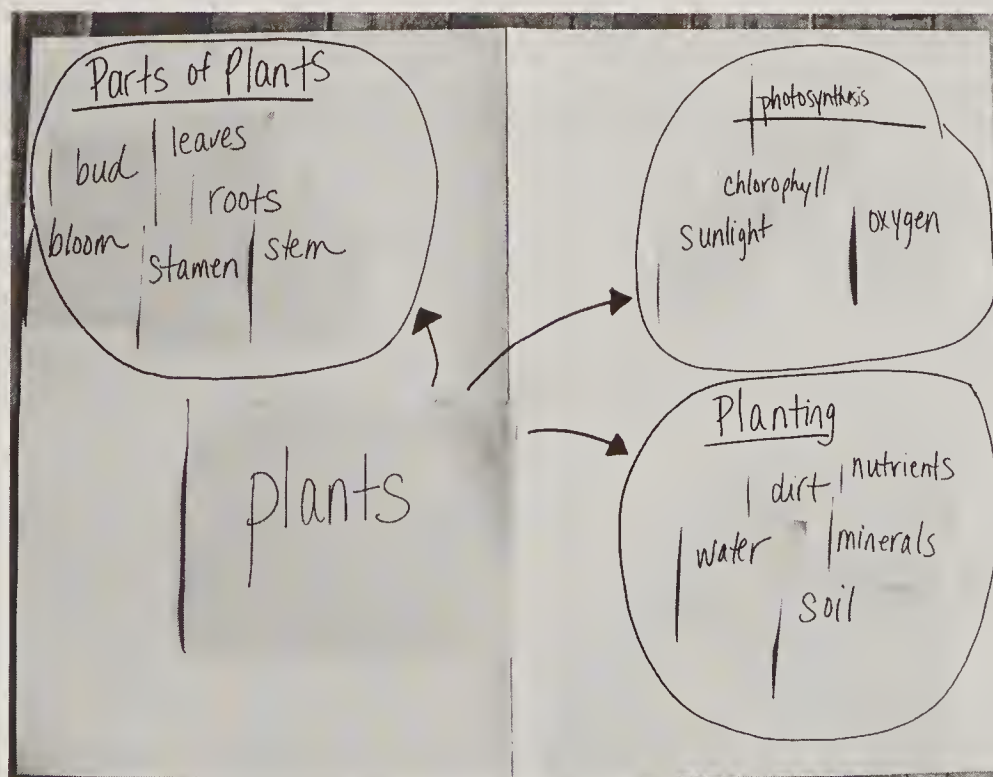 Parts of Plants
bud leaves
roots
bloom stamen stem
photosynthesis
chlorophyll
sunlight oxygen
plants
Planting
dirt nutrients
water minerals
soil